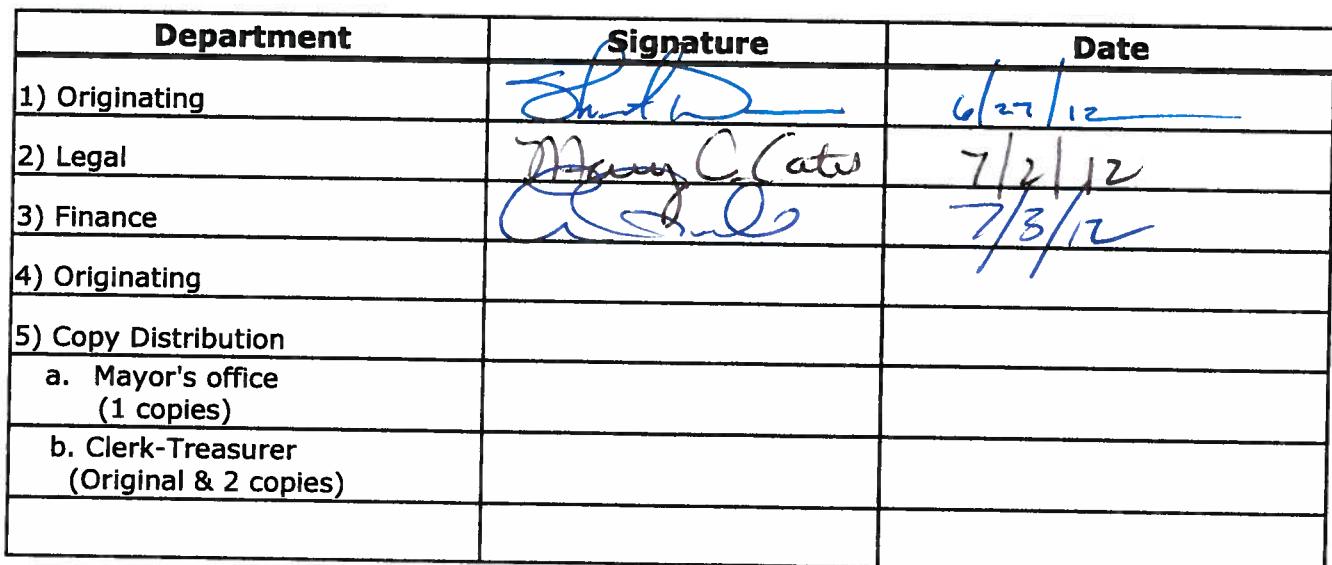 Department Signature Date
1) Originating 6/27/12
2) Legal Mary C. Cates 7/2/12
3) Finance 7/3/12
4) Originating
5) Copy Distribution
a. Mayor's office
(1 copies)
b. Clerk-Treasurer
(Original & 2 copies)